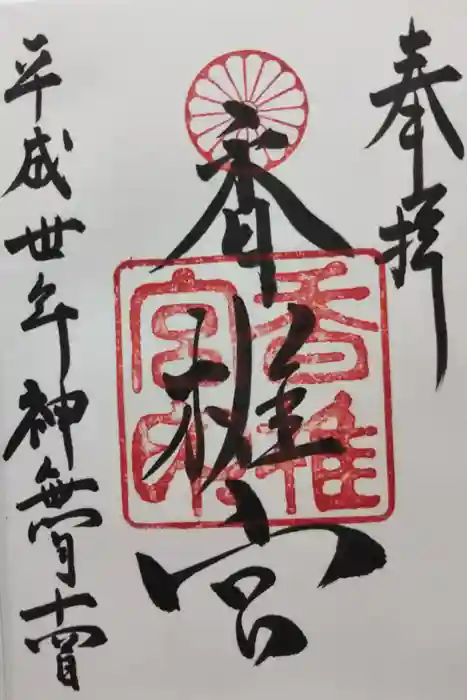 奉拝
香椎宮
香椎
宮印
平成丗年神無月十四日